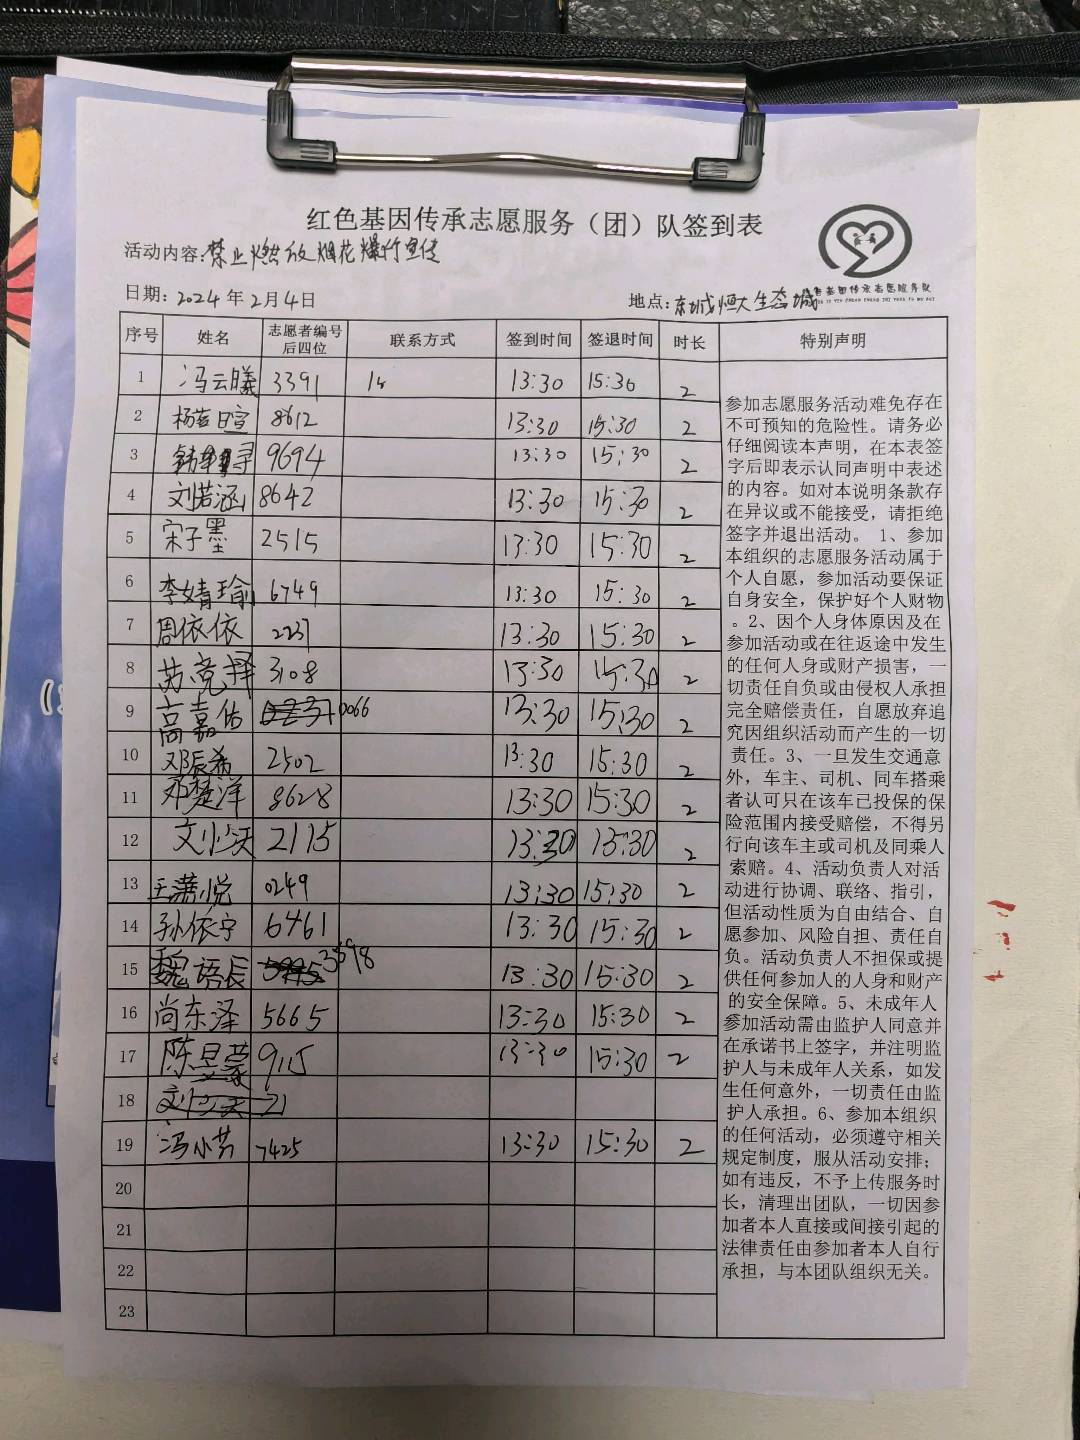 红色基因传承志愿服务（团）队签到表
活动内容：禁止燃放烟花爆竹宣传
日期：2024年2月4日 地点：东城恒大生态城
序号 姓名 志愿者编号后四位 联系方式 签到时间 签退时间 时长 特别声明
1 冯云曦 3391 18 13:30 15:30 2
2 杨 暄 8612 13:30 15:30 2
3 9694 13:30 15:30 2
4 刘若涵 8642 13:30 15:30 2
5 宋子墨 2515 13:30 15:30 2
6 李婧瑜 6749 13:30 15:30 2
7 周依依 2237 13:30 15:30 2
8 苏竞择 3108 13:30 15:30 2
9 高嘉佑 0066 13:30 15:30 2
10 邓辰希 2502 13:30 15:30 2
11 邓楚洋 8628 13:30 15:30 2
12 2115 13:30 15:30 2
13 王潇悦 0249 13:30 15:30 2
14 孙依宁 6461 13:30 15:30 2
15 魏语辰 3598 13:30 15:30 2
16 尚东泽 5665 13:30 15:30 2
17 陈昱蒙 9115 13:30 15:30 2
18 21
19 冯小芳 7425 13:30 15:30 2
20
21
22
23
参加志愿服务活动难免存在
不可预知的危险性。请务必
仔细阅读本声明，在本表签
字后即表示认同声明中表述
的内容。如对本说明条款存
在异议或不能接受，请拒绝
签字并退出活动。 1、参加
本组织的志愿服务活动属于
个人自愿，参加活动要保证
自身安全，保护好个人财物
。2、因个人身体原因及在
参加活动或在往返途中发生
的任何人身或财产损害，一
切责任自负或由侵权人承担
完全赔偿责任，自愿放弃追
究因组织活动而产生的一切
责任。3、一旦发生交通意
外，车主、司机、同车搭乘
者认可只在该车已投保的保
险范围内接受赔偿，不得另
行向该车主或司机及同乘人
索赔。4、活动负责人对活
动进行协调、联络、指引，
但活动性质为自由结合、自
愿参加、风险自担、责任自
负。活动负责人不担保或提
供任何参加人的人身和财产
的安全保障。5、未成年人
参加活动需由监护人同意并
在承诺书上签字，并注明监
护人与未成年人关系，如发
生任何意外，一切责任由监
护人承担。6、参加本组织
的任何活动，必须遵守相关
规定制度，服从活动安排；
如有违反，不予上传服务时
长，清理出团队，一切因参
加者本人直接或间接引起的
法律责任由参加者本人自行
承担，与本团队组织无关。